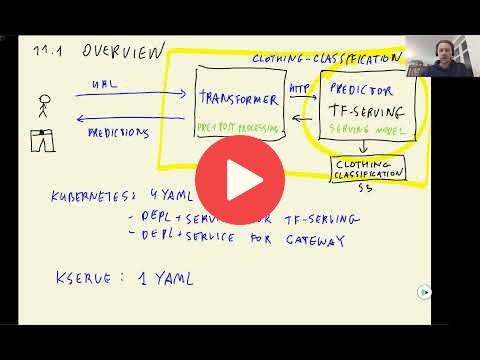 11.1 OVERVIEW
CLOTHING-CLASSIFICATION
URL
PREDICTIONS
TRANSFORMER
PRE & POST PROCESSING
HTTP
PREDICTOR
TF-SERVING
SERVING MODEL
CLOTHING
CLASSIFICATION
S3
KUBERNETES: 4 YAML
- DEPL + SERVICE FOR TF-SERVING
- DEPL + SERVICE FOR GATEWAY
KSERVE: 1 YAML